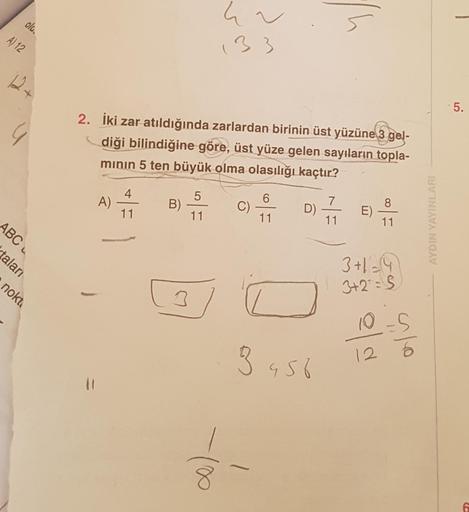 4 2
5
133
A) 12
12+
4
5.
2. İki zar atıldığında zarlardan birinin üst yüzüne 3 gel-
diği bilindiğine göre, üst yüze gelen sayıların topla-
mının 5 ten büyük olma olasılığı kaçtır?
A) 4/11 B) 5/11 C) 6/11 D) 7/11 E) 8/11
AYDIN YAYINLARI
ABC
noktı
3+1=4
3+2=5
3
10/12 = 5/6
3 456
11
1/8 -
6